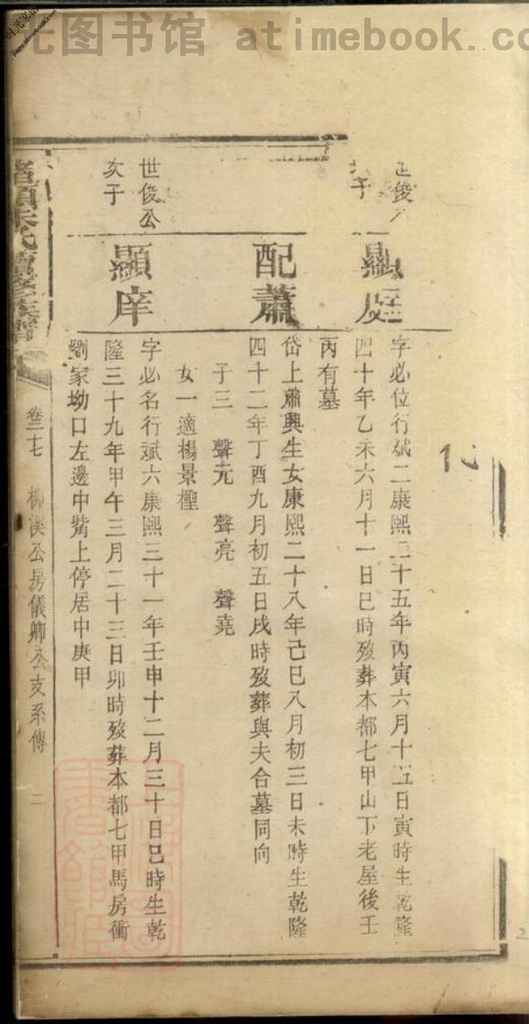 光图书馆 atimebook.com
世俊公
子
顯庭
字必位行斌二康熙二十五年丙寅六月十五日寅時生乾隆
四十年乙未六月十一日巳時歿葬本都七甲山下老屋後壬
丙有墓
配蕭
岱上蕭興生女康熙二十八年己巳八月初三日未時生乾隆
四十二年丁酉九月初五日戌時歿葬與夫合墓同向
子三 聲元 聲亮 聲堯
女一適楊景樘
世俊公
次子
顯庠
字必名行斌六康熙三十一年壬申十二月三十日巳時生乾
隆三十九年甲午三月二十三日卯時歿葬本都七甲馬房衝
劉家坳口左邊中嘴上停居中庚甲
朱氏續修族譜
卷三七 柳溪公房儀卿公支系傳 二